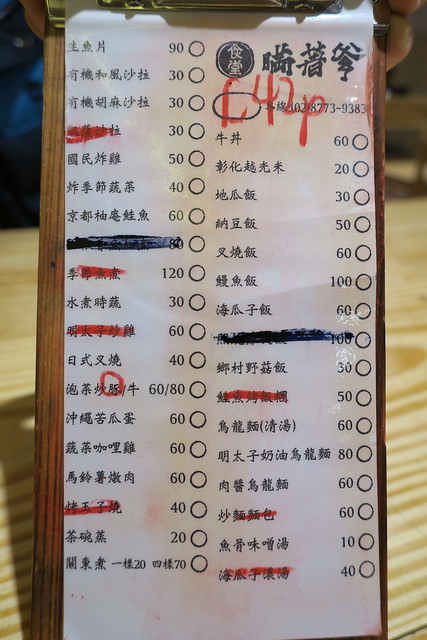 生魚片 90
有機和風沙拉 30
有機胡麻沙拉 30
沙拉 30
國民炸雞 50
炸季節蔬菜 40
京都柚庵鮭魚 60
80
季節魚煮 120
水煮時蔬 30
明太子炒雞 60
日式叉燒 40
泡菜炒豚/牛 60/80
沖繩苦瓜蛋 60
蔬菜咖哩雞 60
馬鈴薯燉肉 60
烤玉子燒 40
茶碗蒸 20
關東煮 一樣20 四樣70
食堂 瞞著爹
外線(02)8773-9383
42p
牛丼 60
彰化越光米 20
地瓜飯 30
納豆飯 50
叉燒飯 60
鰻魚飯 100
海瓜子飯 60
100
鄉村野菇飯 30
鮭魚烤飯糰 50
烏龍麵(清湯) 60
明太子奶油烏龍麵 80
肉醬烏龍麵 60
炒麵麵包 60
魚骨味噌湯 10
海瓜子濃湯 40